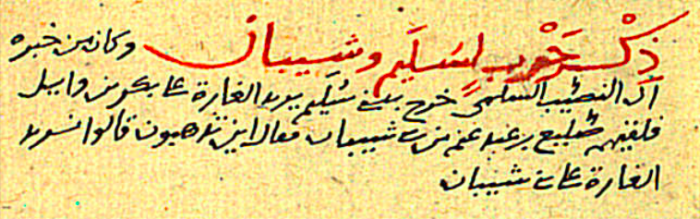 ذكر حرب لسليم وشيبان وكان من خبره
ان النصيب السلمي خرج ببني سليم يريد الغارة على بكر بن وايل
فلقيهم صليع بن عبد غنم من بني شيبان فقال اين تذهبون قالوا نريد
الغارة على بني شيبان